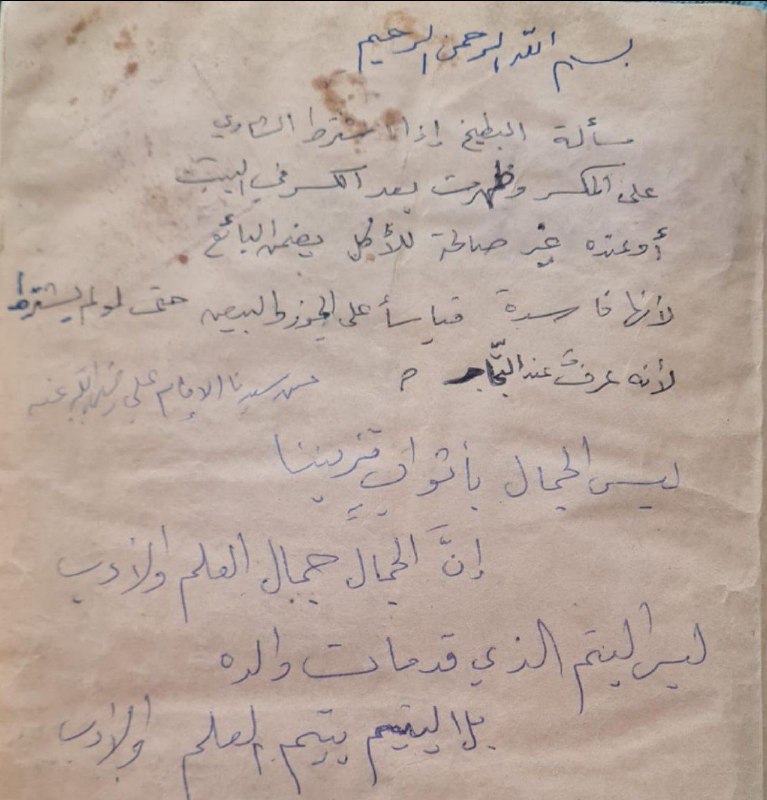 بسم الله الرحمن الرحيم
مسألة البطيخ إذا اشترط الشاري
على المكسر وظهرت بعد الكسر في البيت
أو عنده غير صالحة للأكل يضمن البائع
لأنها فاسدة قياساً على الجوز والبيض حتى لو لم يشترط
لأنه عرفٌ عند التّجار م
عن سيدنا الإمام علي رضي الله عنه
ليس الجمال بأثوابٍ تزيننا
إنَّ الجمال جمال العلم والأدب
ليس اليتيم الذي قد مات والده
بل اليتيم يتيم العلم والأدب